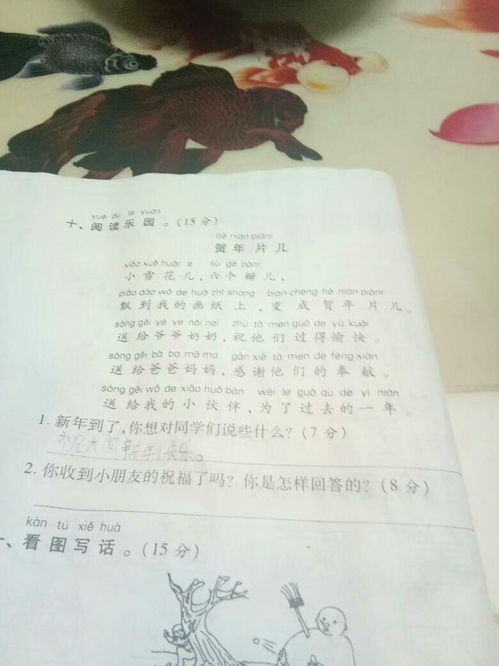 yuè dú lè yuán
十、阅读乐园。(15分)
hè nián piànr
贺年片儿
xiǎo xuě huār e liù gè bànr
小雪花儿,六个瓣儿,
piāo dào wǒ de huà zhǐ shàng biàn chéng hè nián piànr
飘到我的画纸上,变成贺年片儿。
sòng gěi yé ye nǎi nai zhù tā men guò de yú kuài
送给爷爷奶奶,祝他们过得愉快。
sòng gěi bà ba mā ma gǎn xiè tā men de fèng xiàn
送给爸爸妈妈,感谢他们的奉献。
sòng gěi wǒ de xiǎo huǒ bàn wèi le guò qù de yì nián
送给我的小伙伴,为了过去的一年。
1. 新年到了,你想对同学们说些什么?(7分)
祝大家新年快乐。
2. 你收到小朋友的祝福了吗?你是怎样回答的?(8分)
kàn tú xiě huà
一、看图写话。(15分)